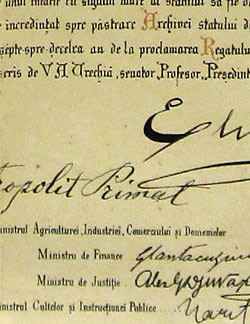 unul învelit cu sigilul mare al statului sa fie
incredinţat spre păstrare Archivei statului d
septe-spre-decelea an de la proclamarea Regatulu
cris de V.A. Urechiă, senator Profesor, Preşedint
opolit Primat
inistrul Agriculturei, Industriei, Comerciului şi Domeniilor
Ministru de Finance Cantacuzin
Ministru de Justiţie
inistrul Cultelor şi Instrucţiunei Publice